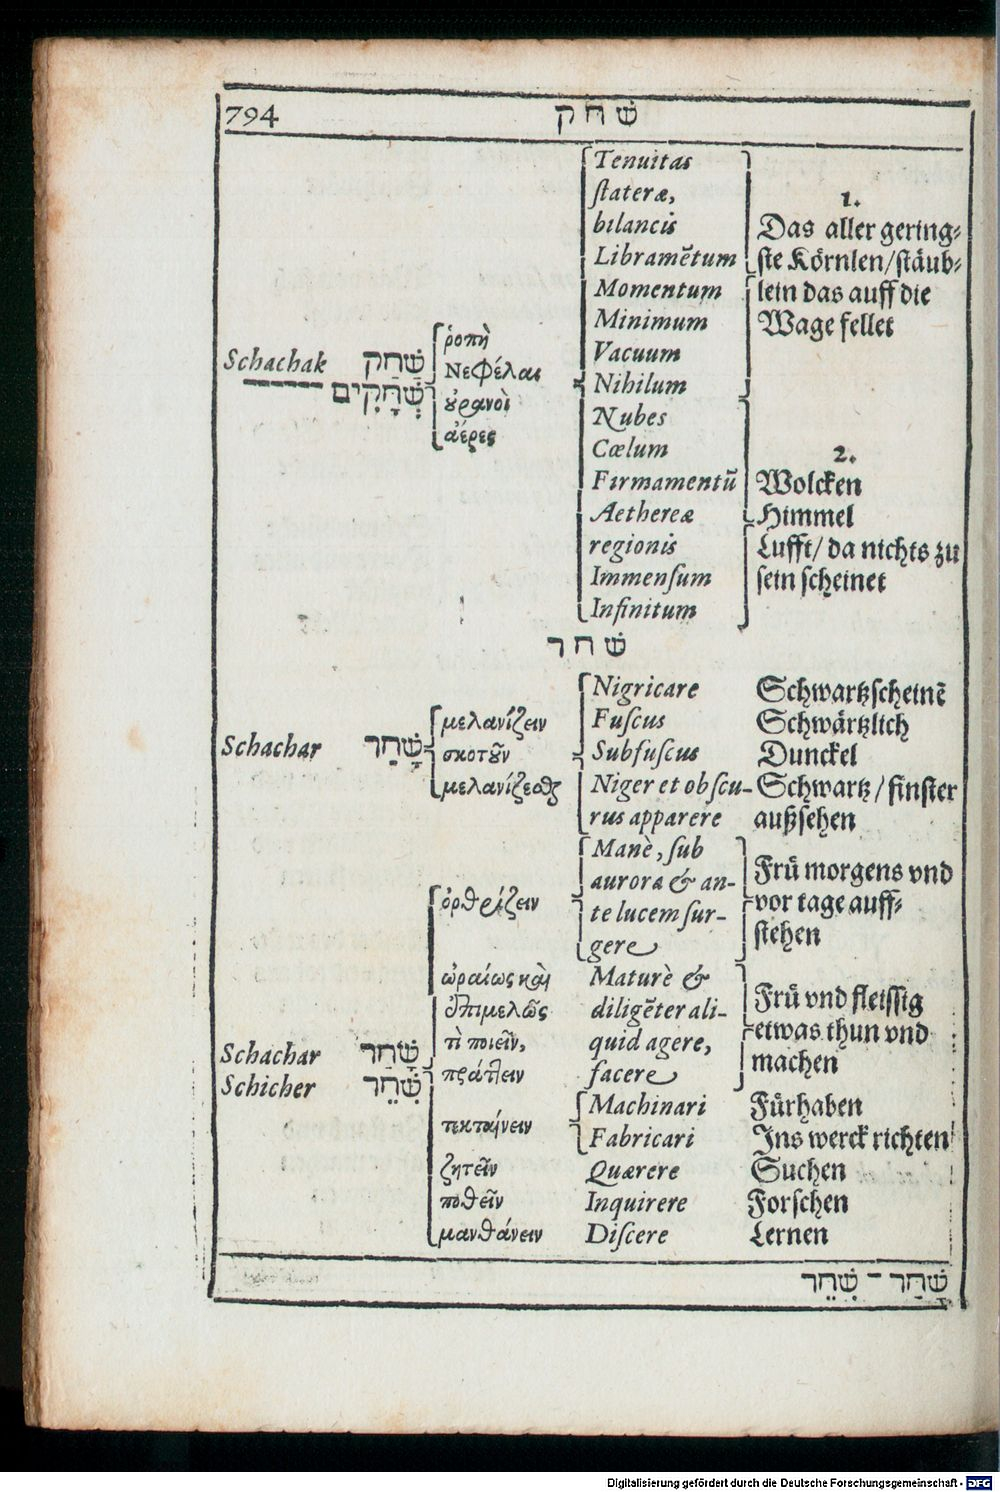 794
שׁחק
Schachak שַׁחַק
שְׁחָקִים
ῥοπὴ
Νεφέλαι
ȣ̓ρανοὶ
ἀέρες
Tenuitas
ſtateræ,
bilancis
Libramẽtum
Momentum
Minimum
Vacuum
Nihilum
Nubes
Cœlum
Firmamentũ
Aethereæ
regionis
Immenſum
Infinitum
1.
Das aller gering⸗
ſte Körnlen/ſtäub⸗
lein das auff die
Wage fellet
2.
Wolcken
Himmel
Lufft/ da nichts zu
ſein ſcheinet
שׁחר
Schachar שָׁחַר
μελανίζειν
σκοτȣ͂ν
μελανίζεσθαι
Nigricare
Fuſcus
Subfuſcus
Niger et obſcu-
rus apparere
Schwartzſcheinẽ
Schwärtzlich
Dunckel
Schwartz/ finſter
außſehen
Schachar שָׁחַר
Schicher שִׁחֵר
ὀρθρίζειν
ὡραίως καὶ
ἐπιμελῶς
τὶ ποιεῖν,
πράττειν
τεκταίνειν
ζητεῖν
ποθεῖν
μανθάνειν
Manè, ſub
aurora & an-
te lucem ſur-
gere
Maturè &
diligẽter ali-
quid agere,
facere
Machinari
Fabricari
Quærere
Inquirere
Diſcere
Frü morgens vnd
vor tage auff⸗
ſtehen
Frü vnd fleiſſig
etwas thun vnd
machen
Fürhaben
Ins werck richten
Suchen
Forſchen
Lernen
שָׁחַר - שִׁחֵר
Digitalisierung gefördert durch die Deutsche Forschungsgemeinschaft - DFG